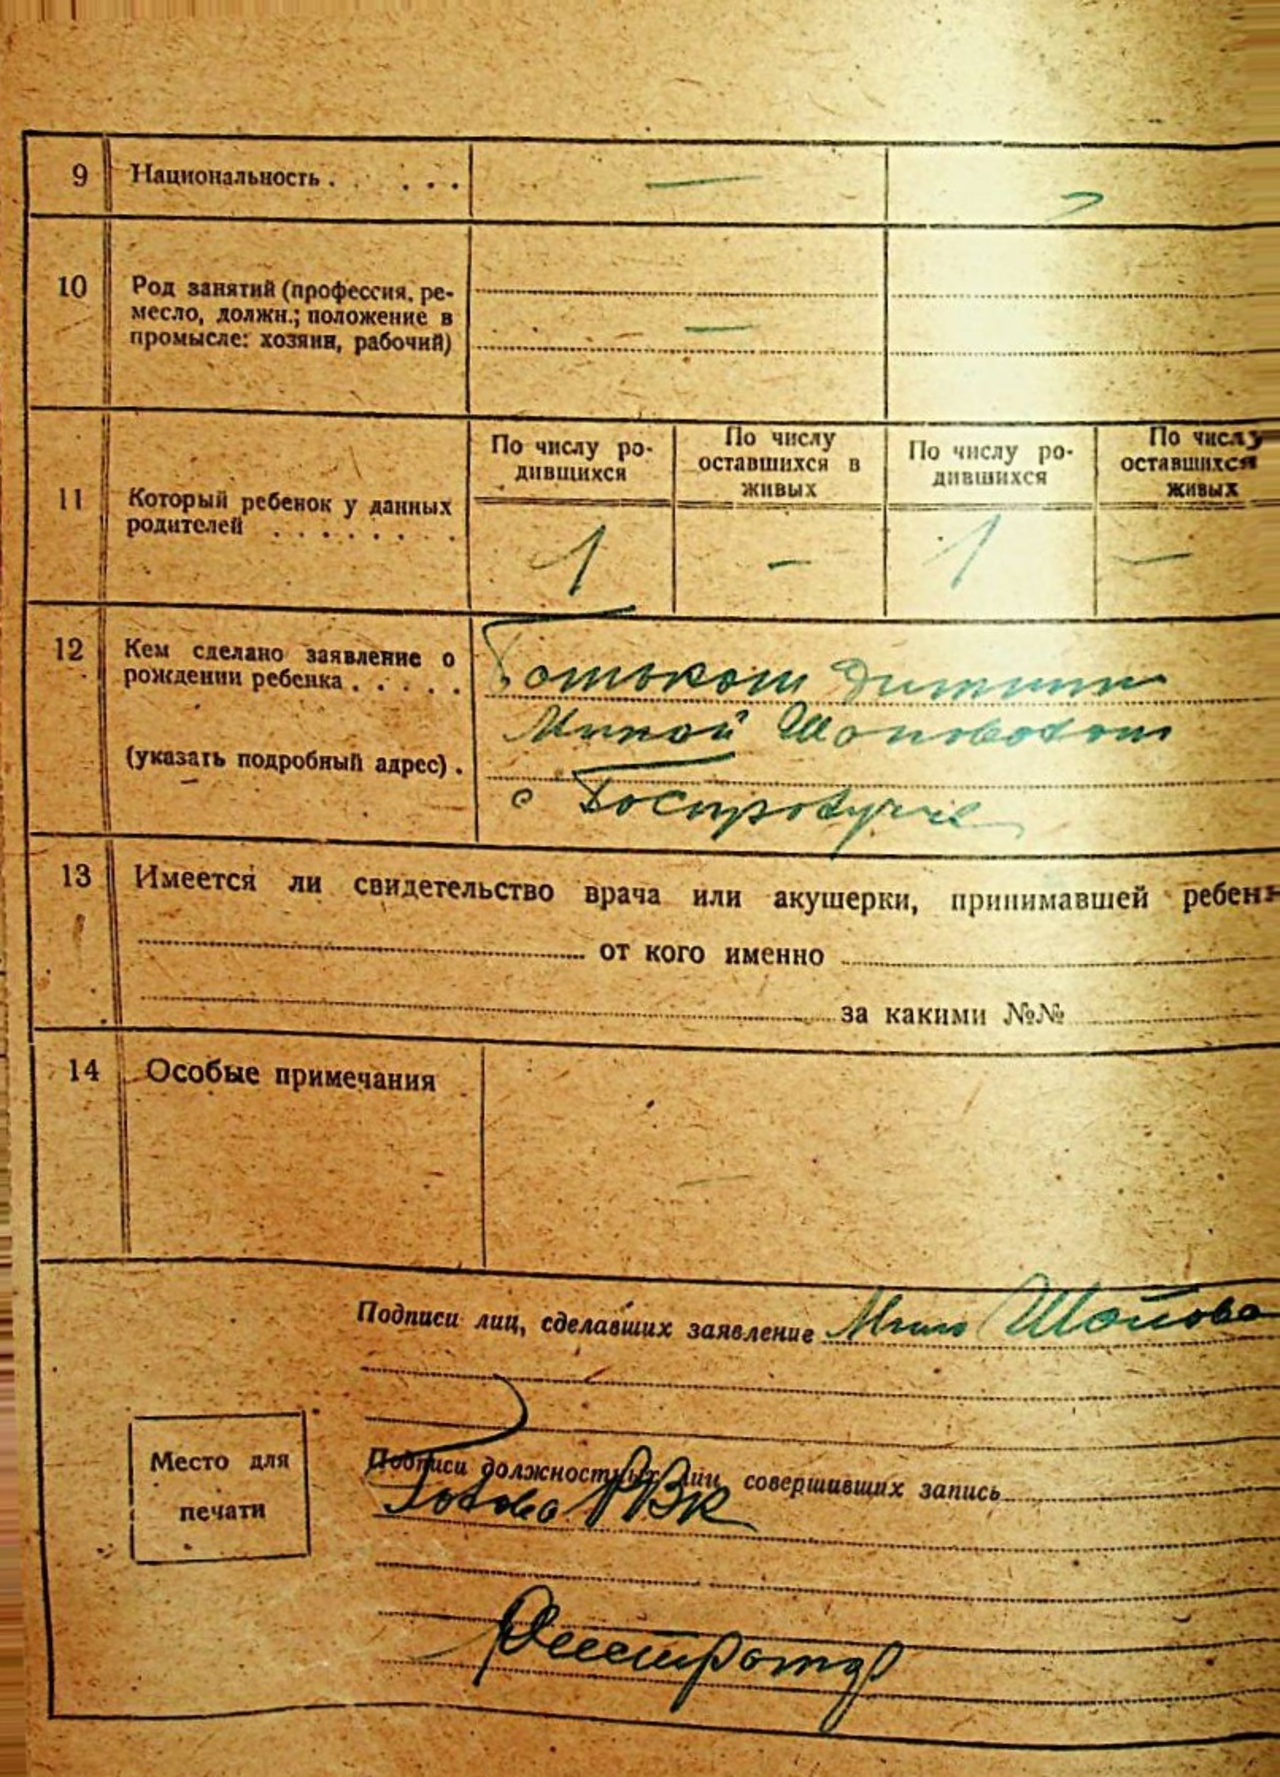 9 Национальность . . . . . — —
10 Род занятий (профессия, ре-
месло, должн.; положение в —
промысле: хозяин, рабочий)
По числу ро-
дившихся
По числу
оставшихся в
живых
По числу ро-
дившихся
По числу
оставшихся
живых
11 Который ребенок у данных
родителей . . . . . . . .
1 - 1 —
12 Кем сделано заявление о
рождении ребенка . . . . . Батьком дитини
Миной Шаповалом
(указать подробный адрес) .
с
13 Имеется ли свидетельство врача или акушерки, принимавшей ребен
от кого именно
за какими №№
14 Особые примечания
—
Подписи лиц, сделавших заявление Шапова
Место для
печати
Подписи должностных лиц, совершивших запись
Голова РВК